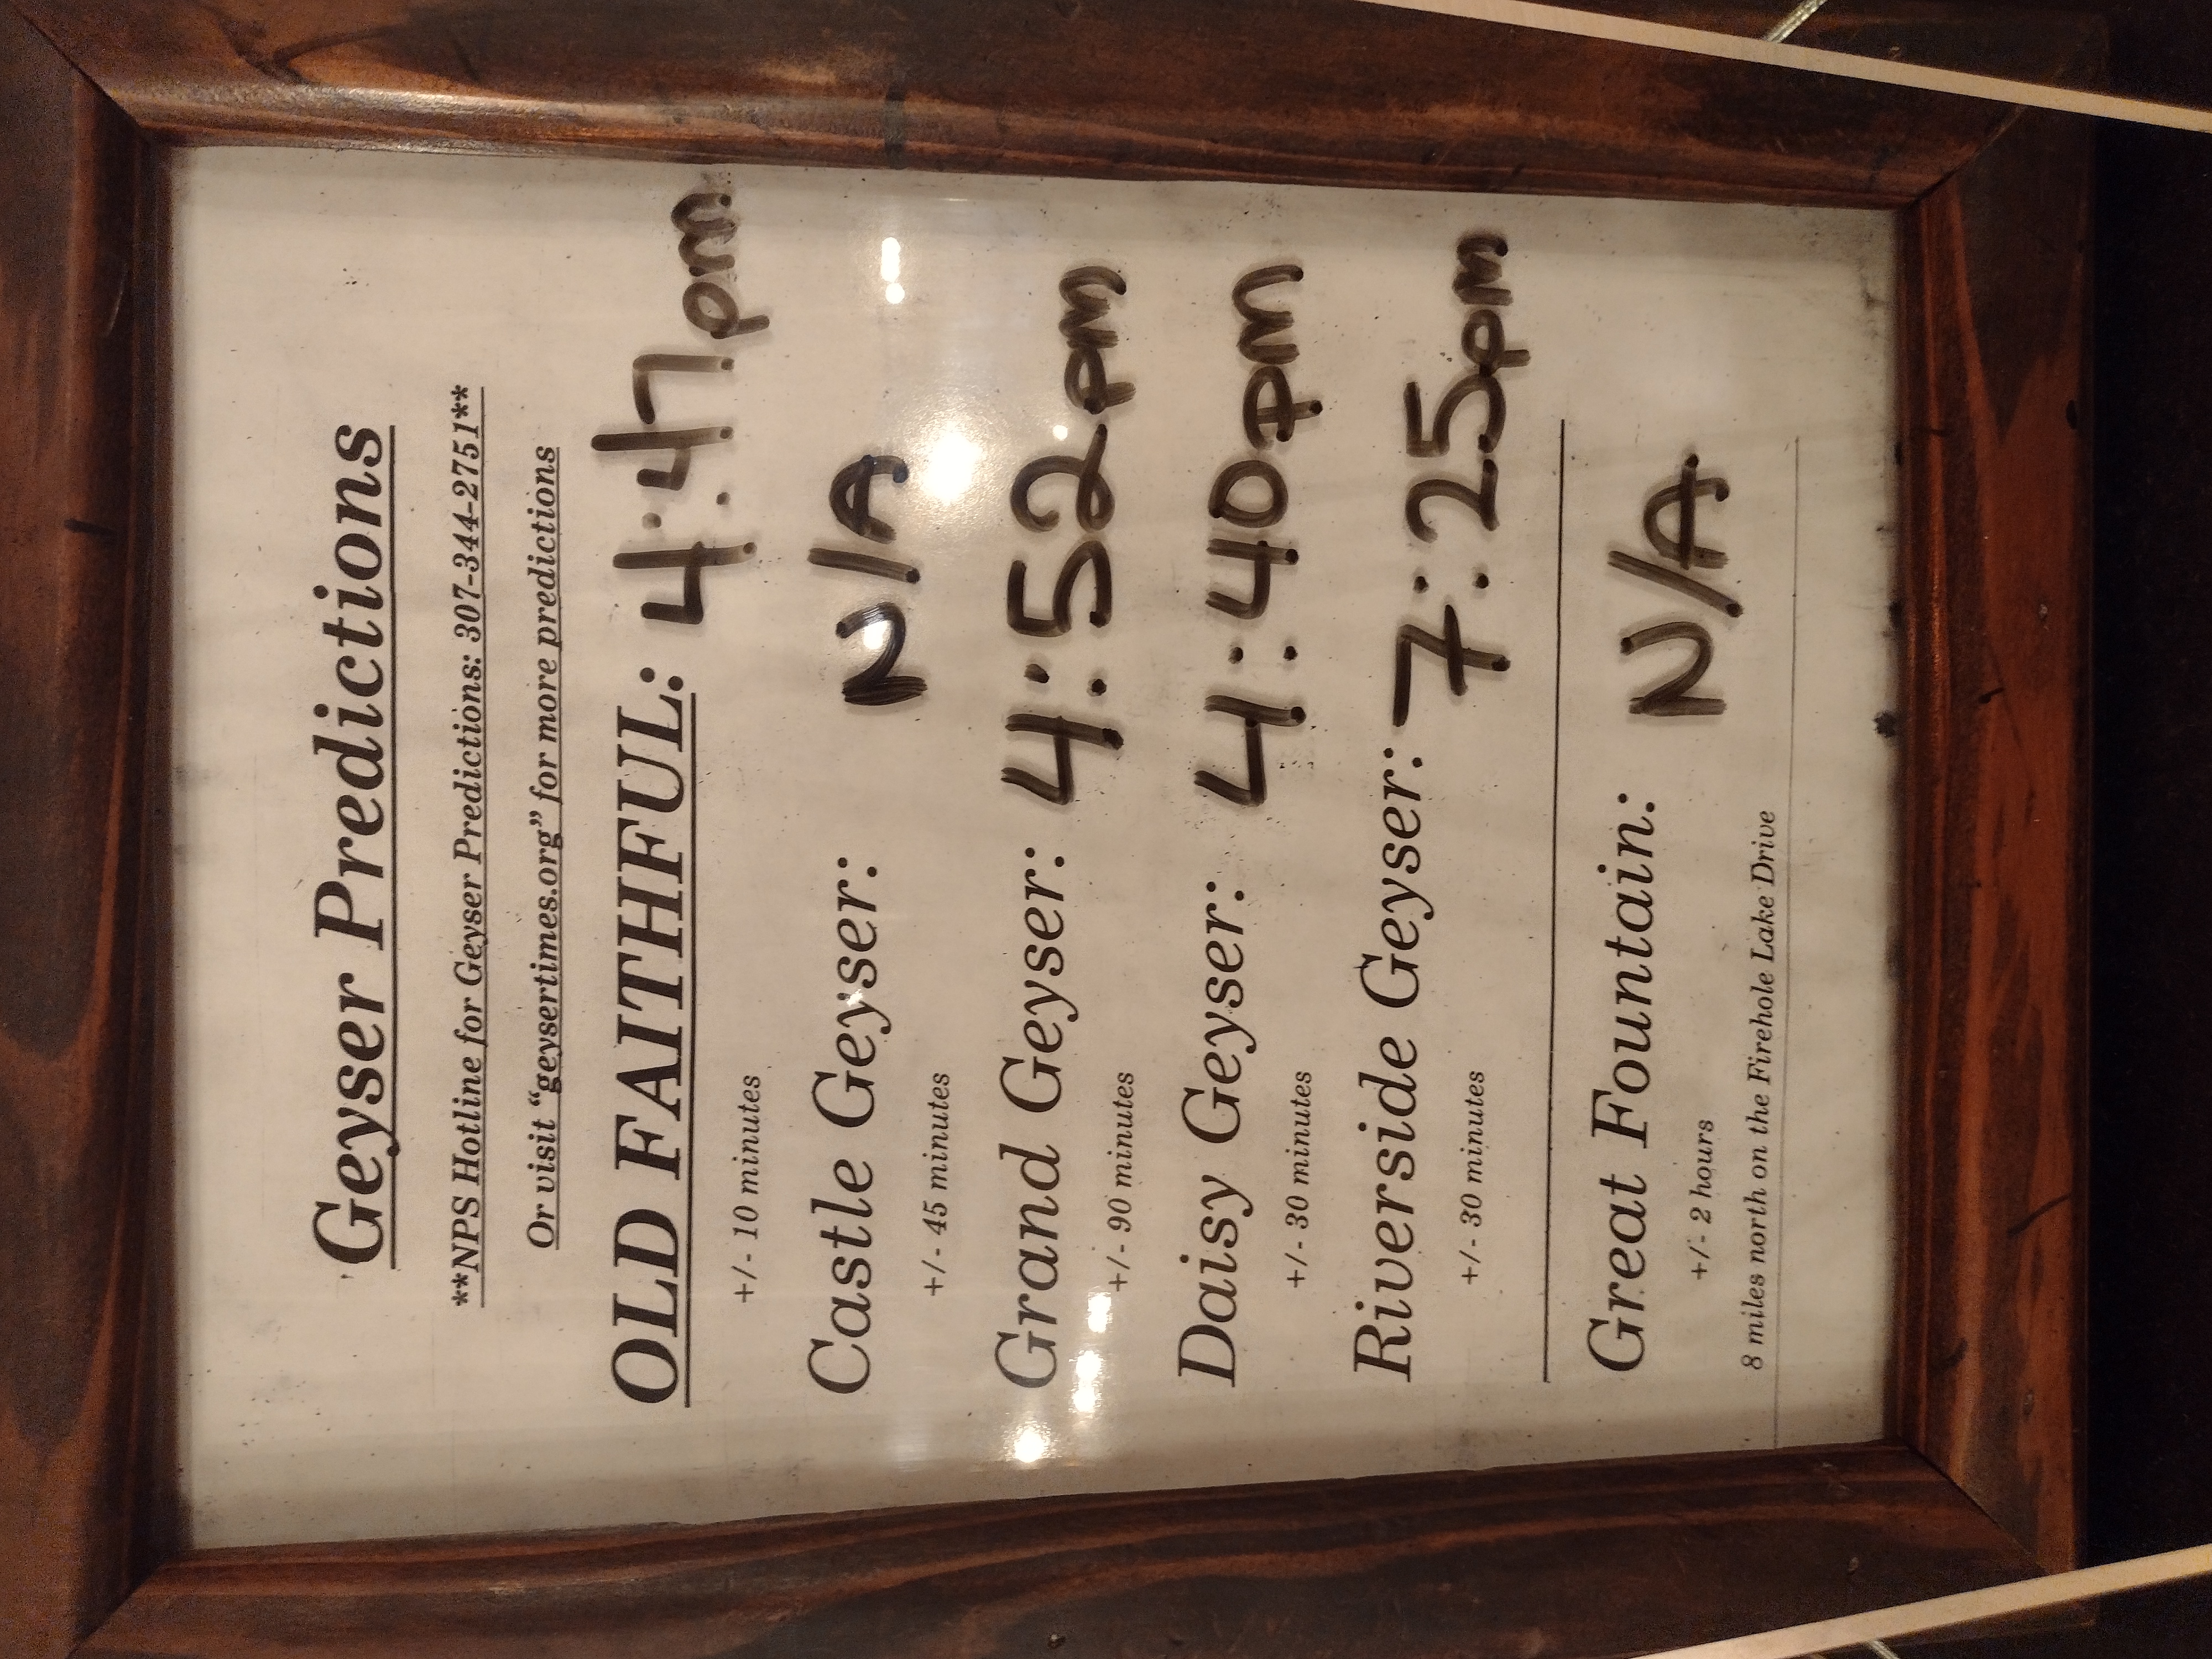 Geyser Predictions
**NPS Hotline for Geyser Predictions: 307-344-2751**
Or visit “geysertimes.org” for more predictions
OLD FAITHFUL: 4:47pm
+/- 10 minutes
Castle Geyser: N/A
+/- 45 minutes
Grand Geyser: 4:52pm
+/- 90 minutes
Daisy Geyser: 4:40pm
+/- 30 minutes
Riverside Geyser: 7:25pm
+/- 30 minutes
Great Fountain: N/A
+/- 2 hours
8 miles north on the Firehole Lake Drive